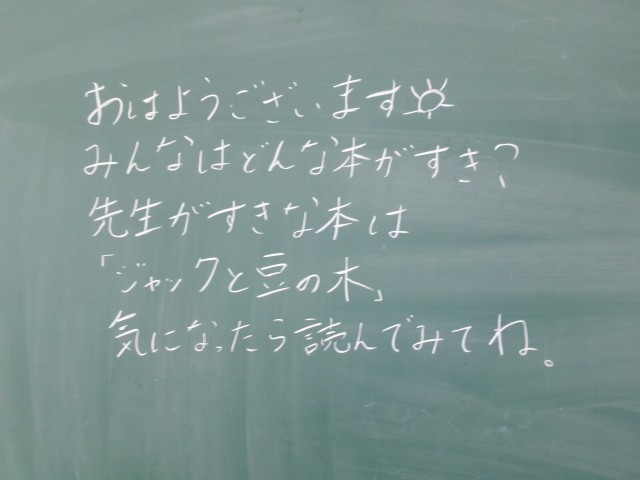 おはようございます☼
みんなはどんな本がすき?
先生がすきな本は
「ジャックと豆の木」
気になったら読んでみてね。